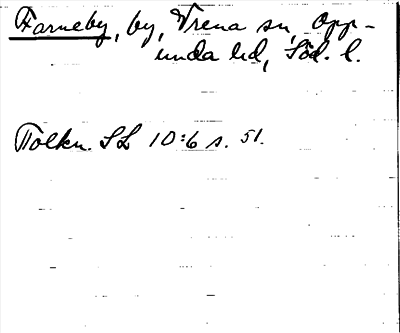 Farneby, by, Vrena sn, Opp-
unda hd, Söd. l.
Tolkn. SL 10:6 s. 51.